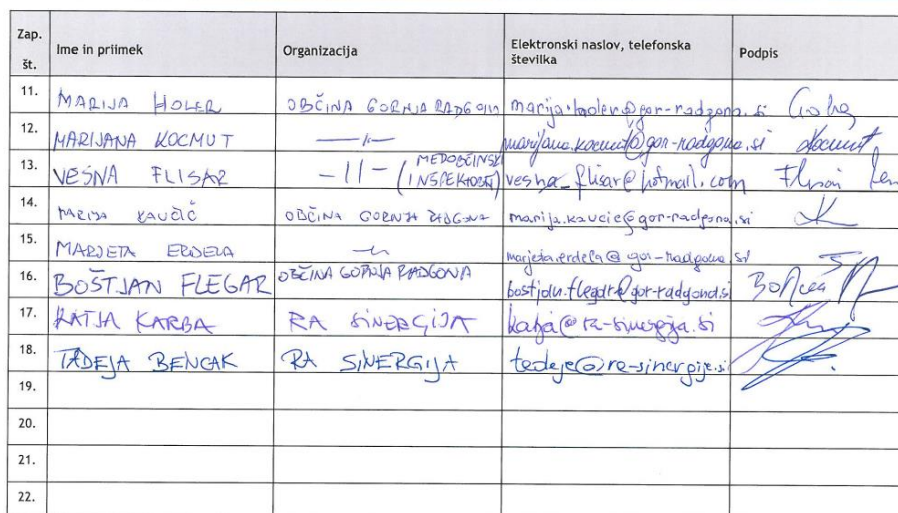 Zap. št. Ime in priimek Organizacija Elektronski naslov, telefonska številka Podpis
11. MARIJA HOLER OBČINA GORNJA RADGONA marija.holer@gor-radgona.si
12. MARIJANA KOCMUT —||— marijana.kocmut@gor-radgona.si Kocmut
13. VESNA FLISAR —||— (MEDOBČINSKI INSPEKTORAT) vesna_flisar@hotmail.com
14. MARIJA KAUČIČ OBČINA GORNJA RADGONA marija.kaucic@gor-radgona.si
15. MARJETA ERDELA —||— marjeta.erdela@gor-radgona.si
16. BOŠTJAN FLEGAR OBČINA GORNJA RADGONA bostjan.flegar@gor-radgona.si
17. KATJA KARBA RA SINERGIJA katja@ra-sinergija.si
18. TADEJA BENCAK RA SINERGIJA tadeja@ra-sinergija.si
19.
20.
21.
22.